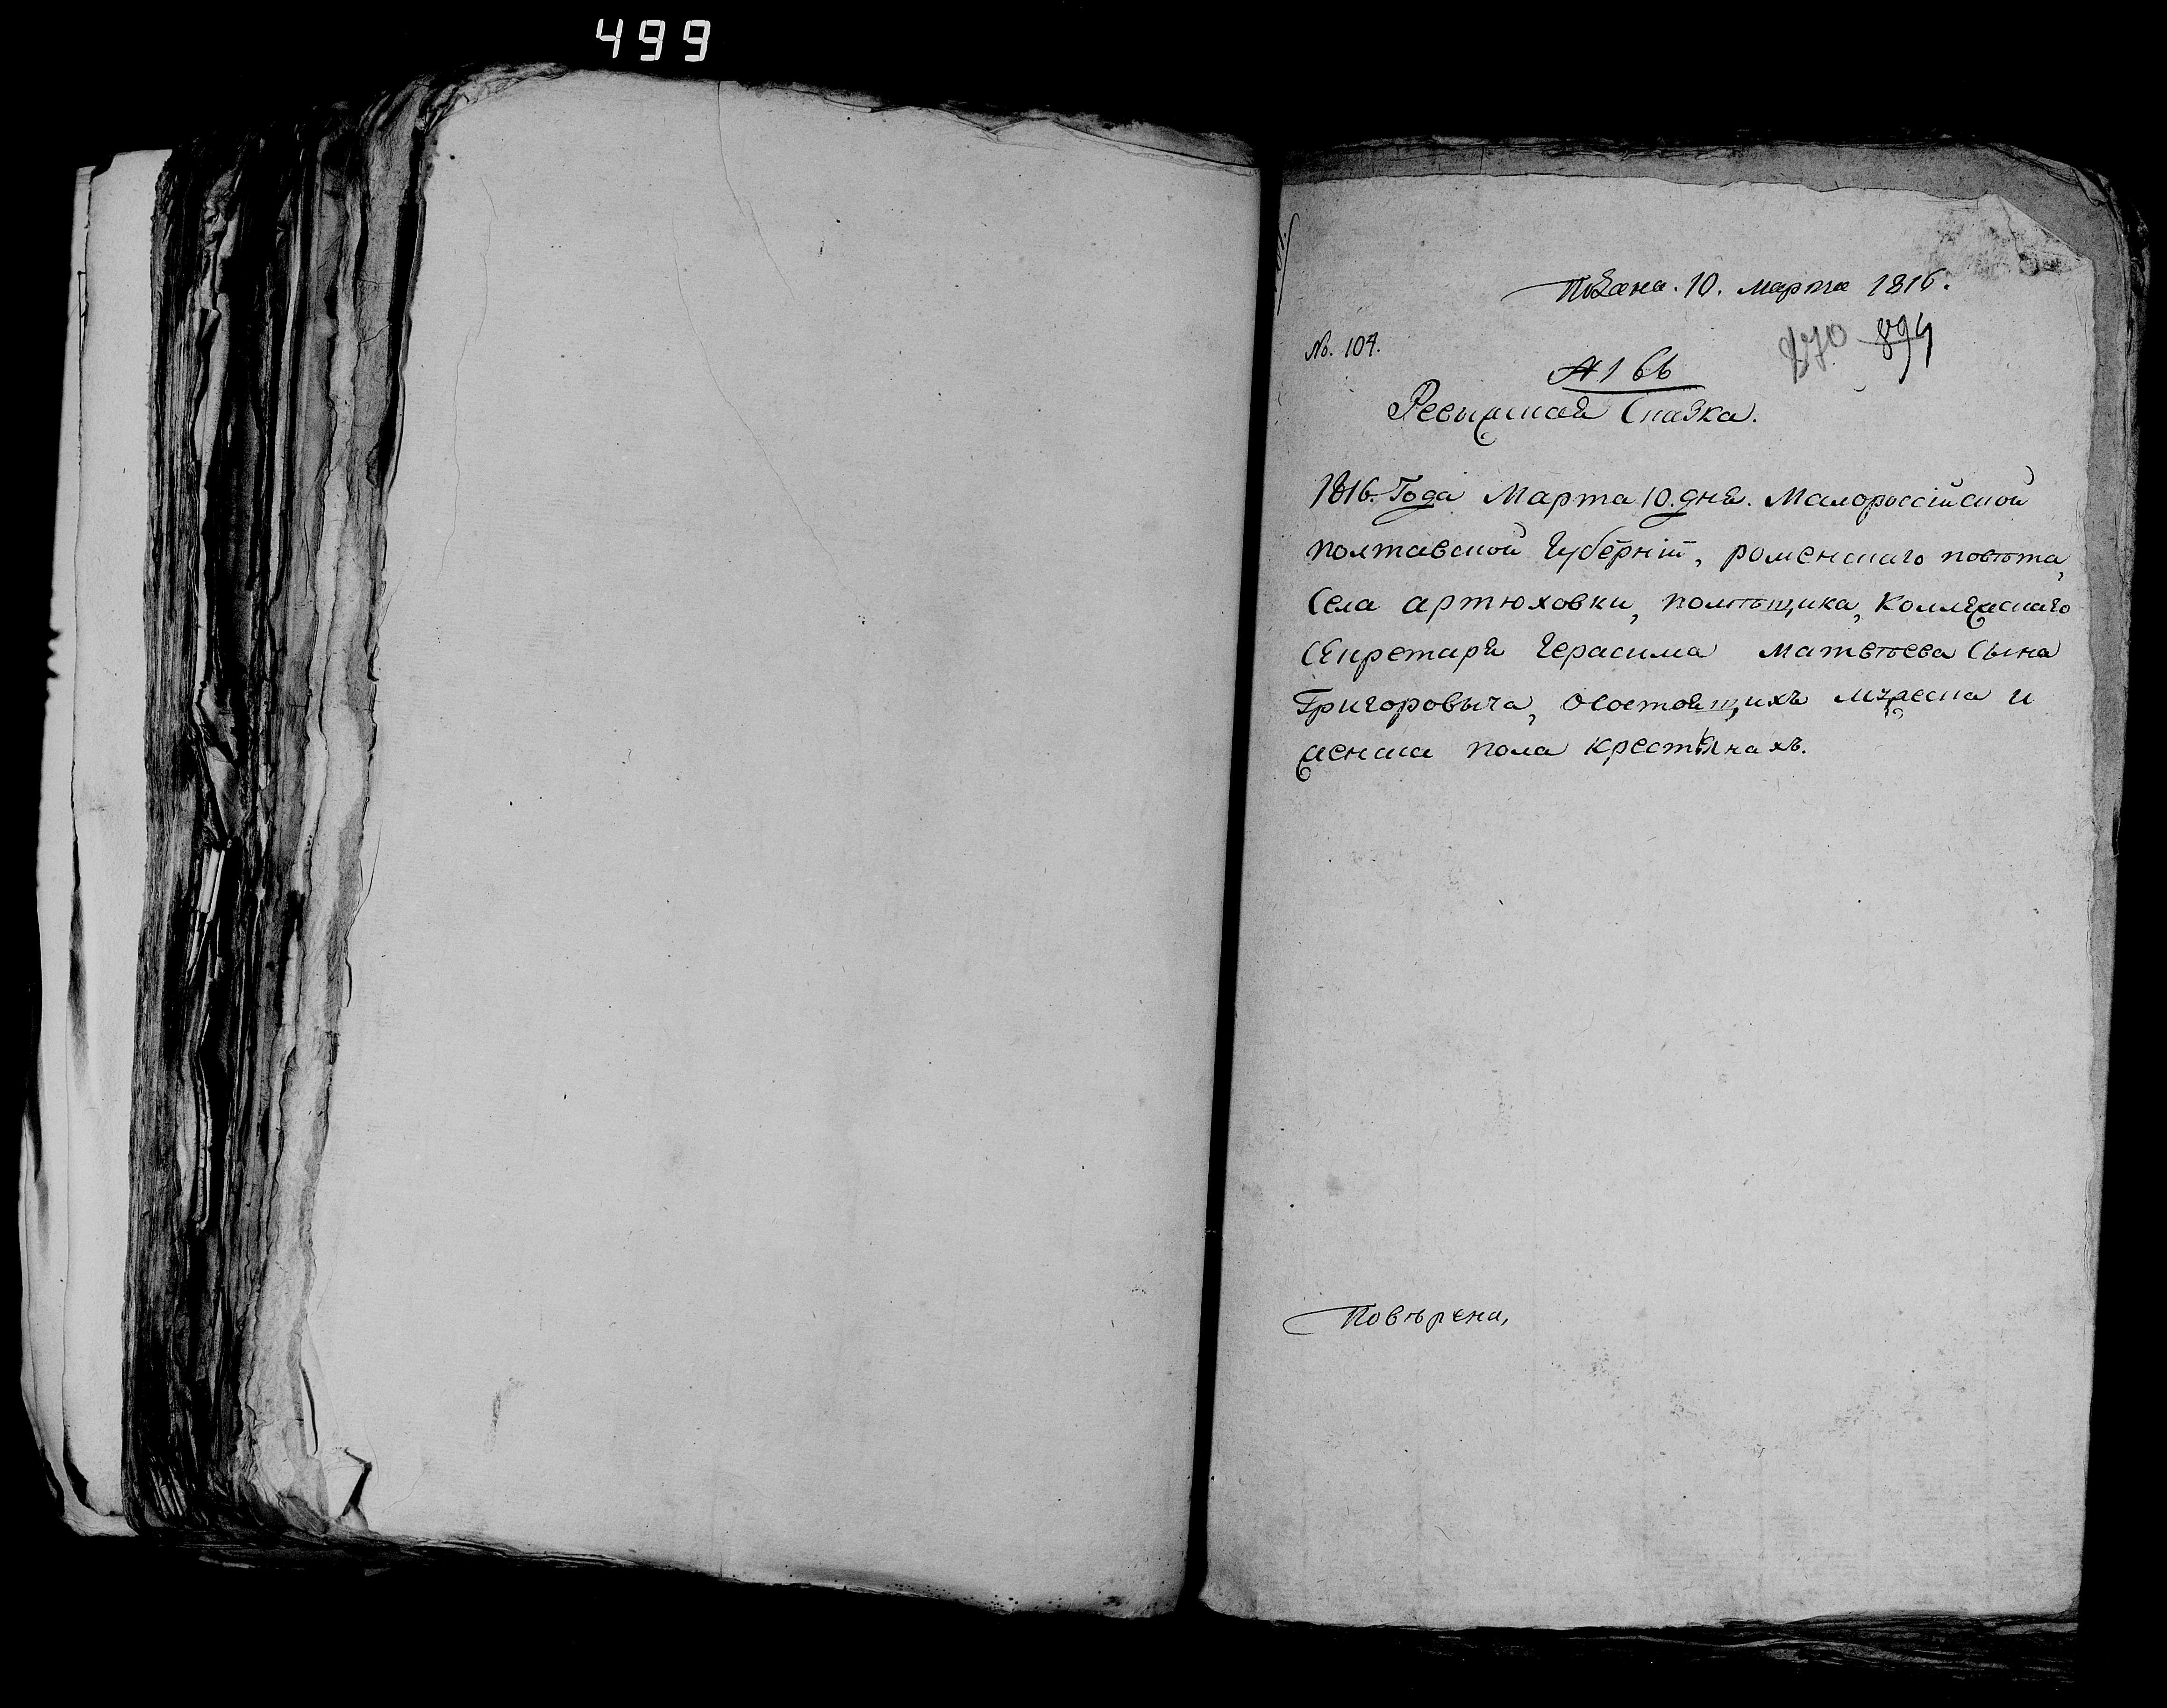 499
Подана. 10. Марта 1816.
№. 104.
894
№ 166
Ревизская Сказка.
1816. Года Марта 10. дня. Малороссійской
полтавской Губерніи, роменскаго повѣта,
Села артюховки, помѣщика, Коллежскаго
Секретаря Герасима Матвѣева Сына
Григоровыча, о состоящихъ мужеска и
женска пола крестьянахъ.
Повѣрена,